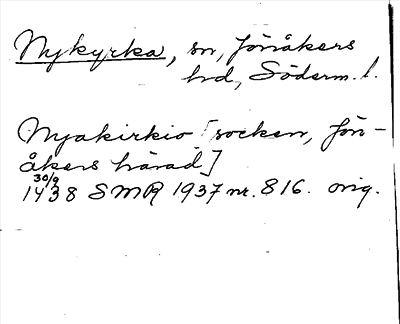 Nykyrka, sn, Jönåkers
hd, Söderm. l.
Nyakirkio [socken, Jön-
åkers härad]
30/9
1438 SMR 1937 nr. 816. orig.